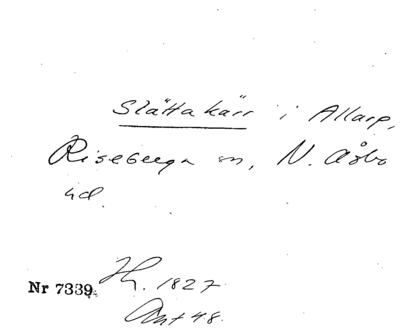 Slättakärr i Allarp,
Riseberga sn, N. Åsbo
hd.
Nr 7339. H. 1827
Ant 48.